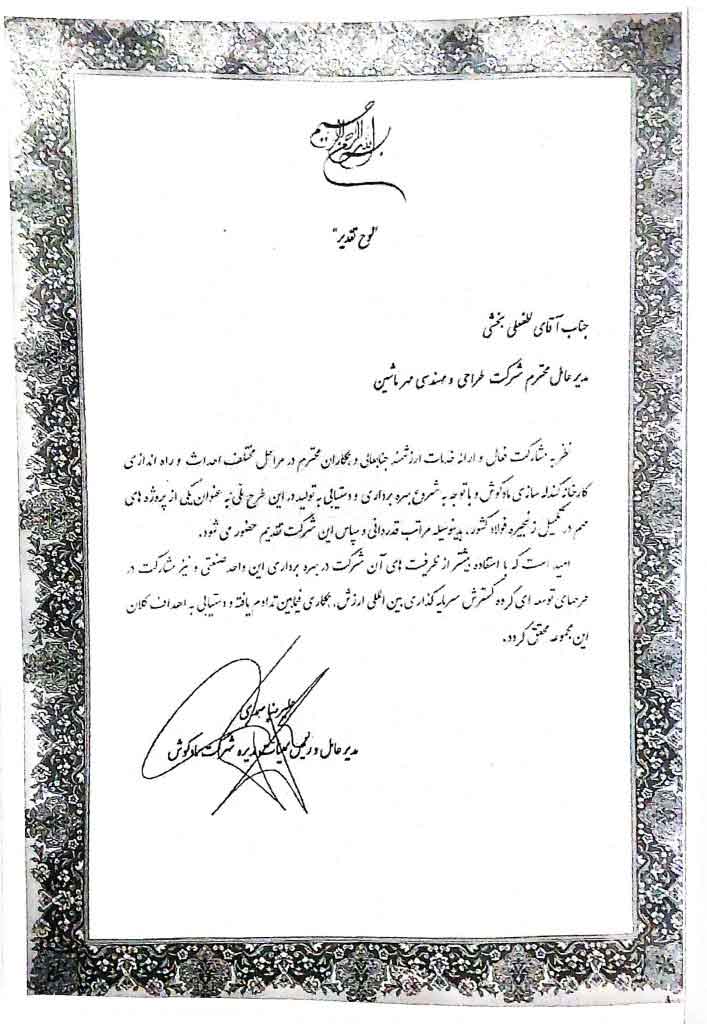 بسم الله الرحمن الرحیم
"لوح تقدیر"
جناب آقای لطفعلی بخشی
مدیر عامل محترم شرکت طراحی و مهندسی مهر ماشین
نظر به مشارکت فعال و ارائه خدمات ارزشمند جنابعالی و همکاران محترم در مراحل مختلف احداث و راه اندازی
کارخانه گندله سازی مادکوش و با توجه به شروع بهره برداری و دستیابی به تولید در این طرح ملی به عنوان یکی از پروژه های
مهم در تکمیل زنجیره فولاد کشور، بدینوسیله مراتب قدردانی و سپاس این شرکت تقدیم حضور می شود.
امید است که با استفاده بیشتر از ظرفیت های آن شرکت در بهره برداری این واحد صنعتی و نیز مشارکت در
طرحهای توسعه ای گروه گسترش سرمایه گذاری بین المللی ارزش، همکاری فیمابین تداوم یافته و دستیابی به اهداف کلان
این مجموعه محقق گردد.
مدیر عامل و رئیس هیات مدیره شرکت مادکوش